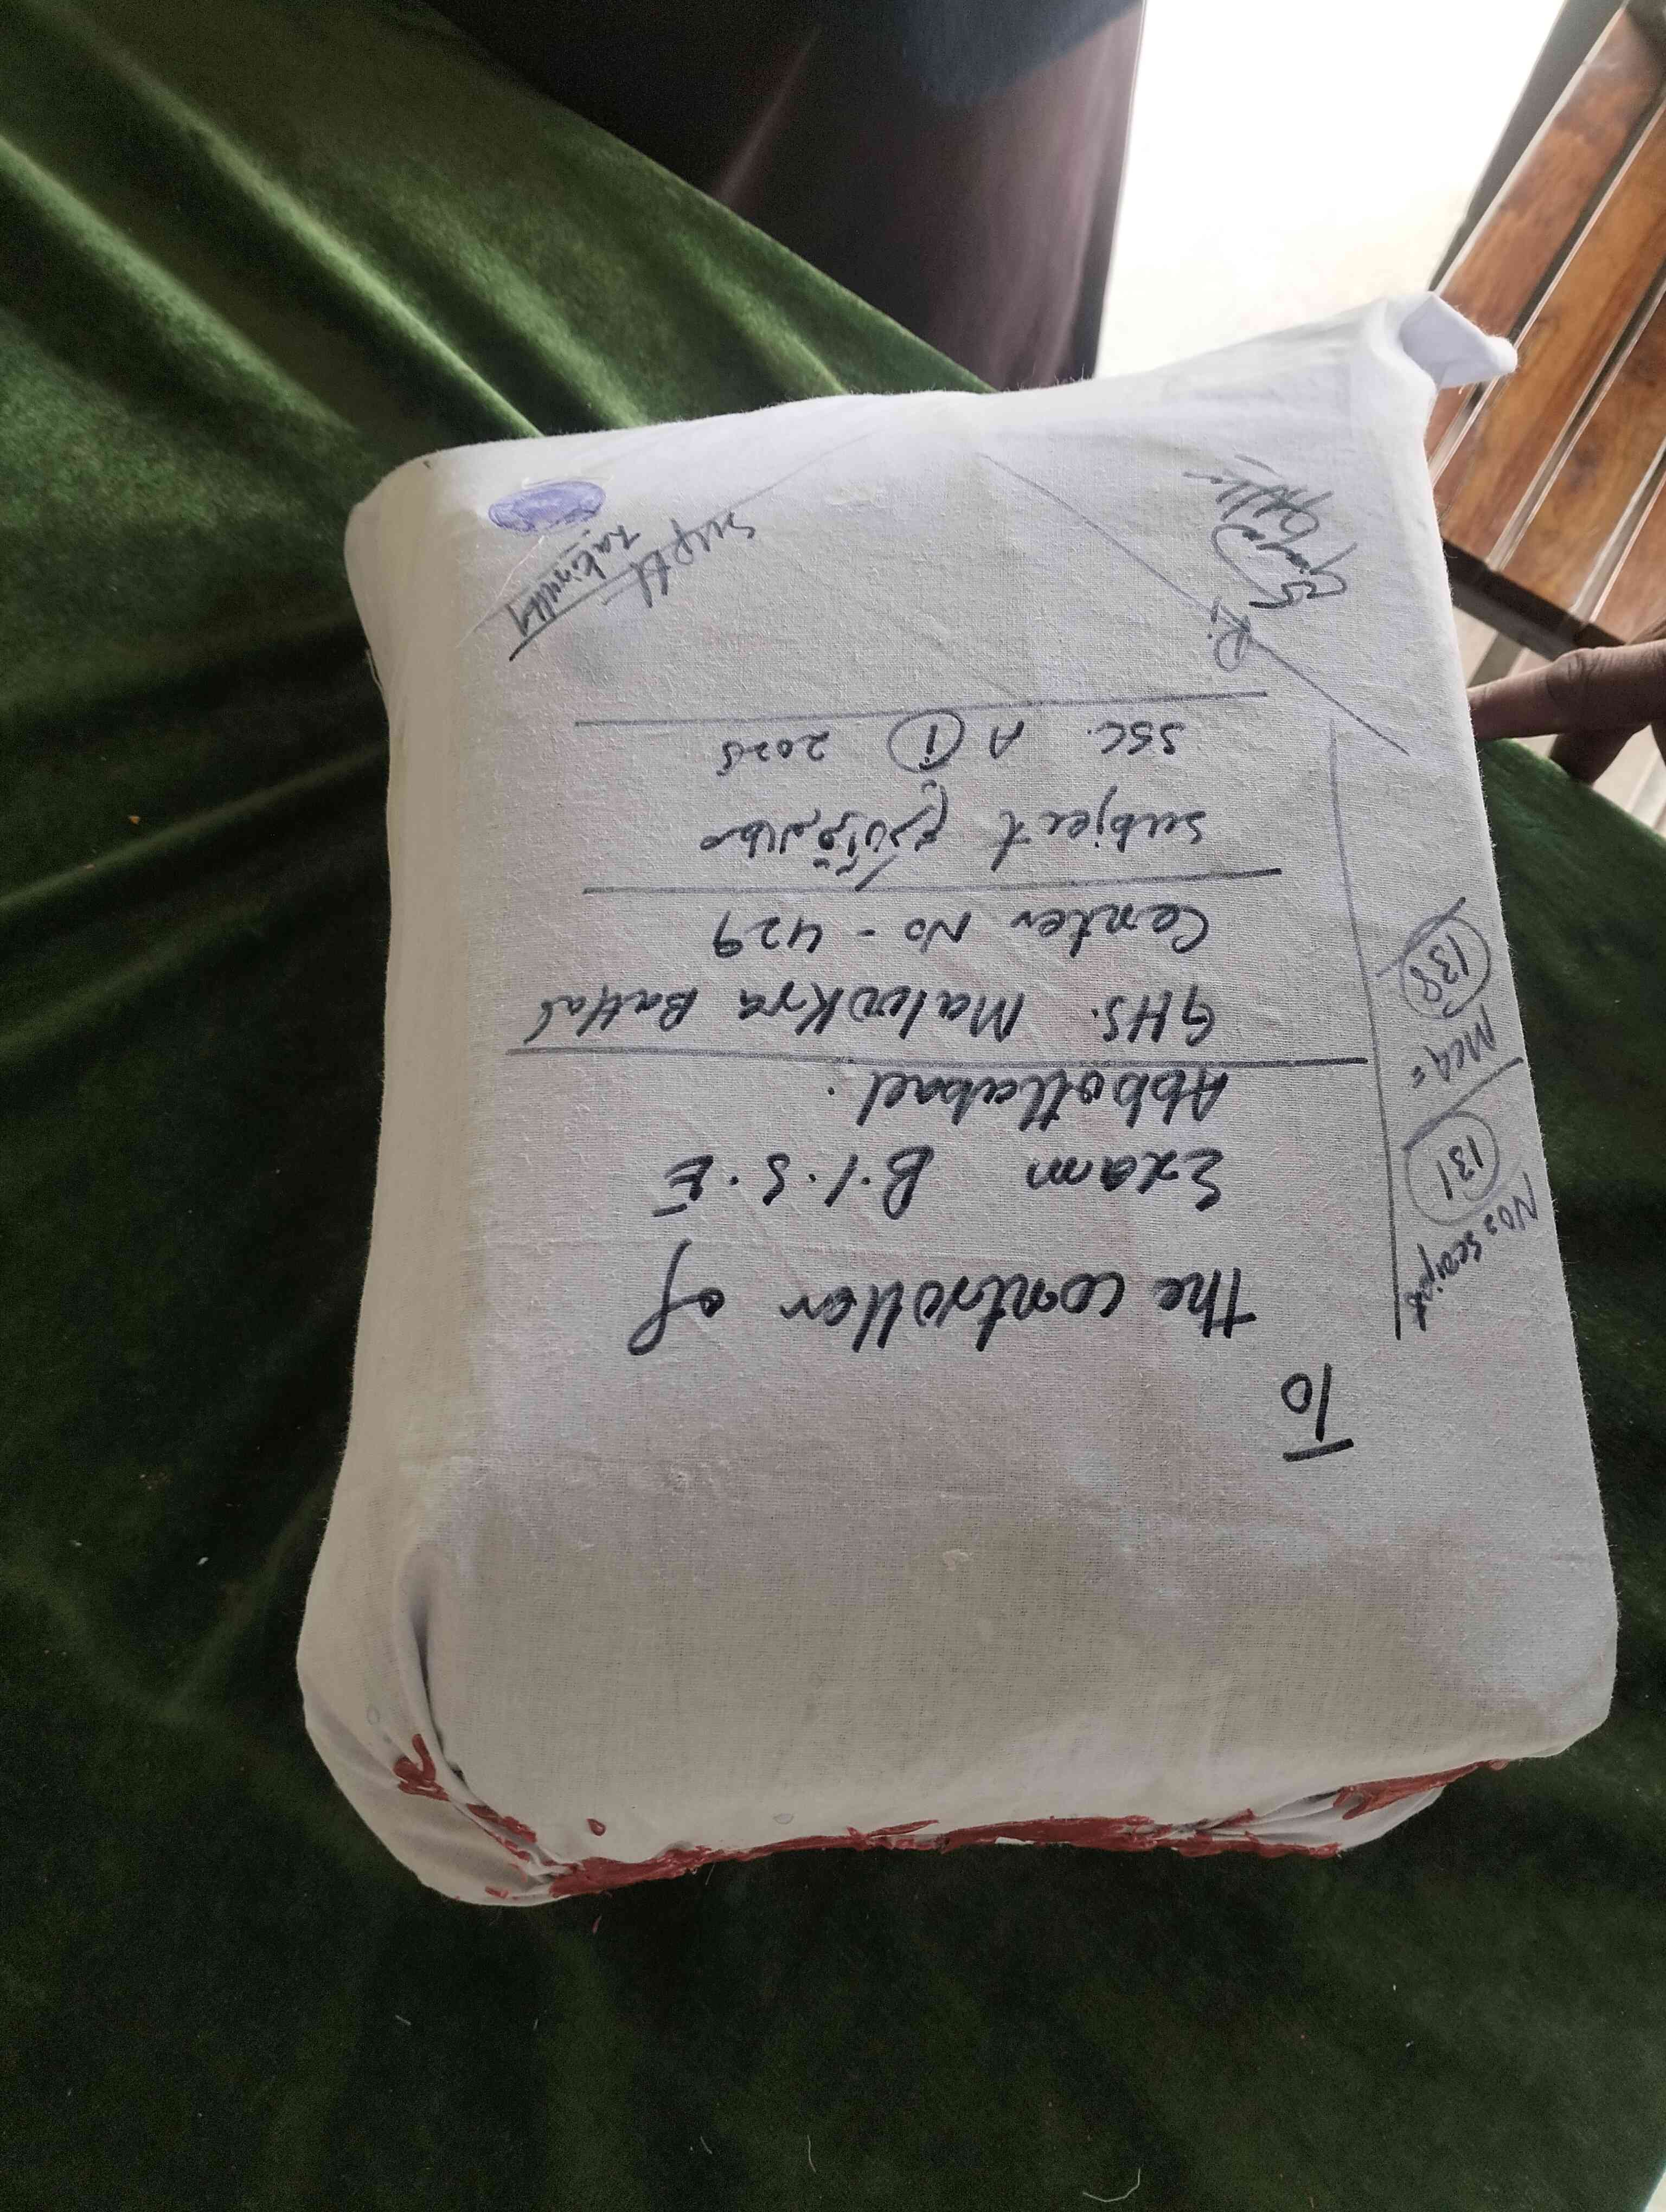 To
The controller of
Exam B.I.S.E
Abbottabad.
GHS. Malookra Battal
Center No - 429
Subject مطالعہ قرآن حکیم
SSC. A (1) 2025
Nos scripts
131
MCQ =
138
Suptt
R.I